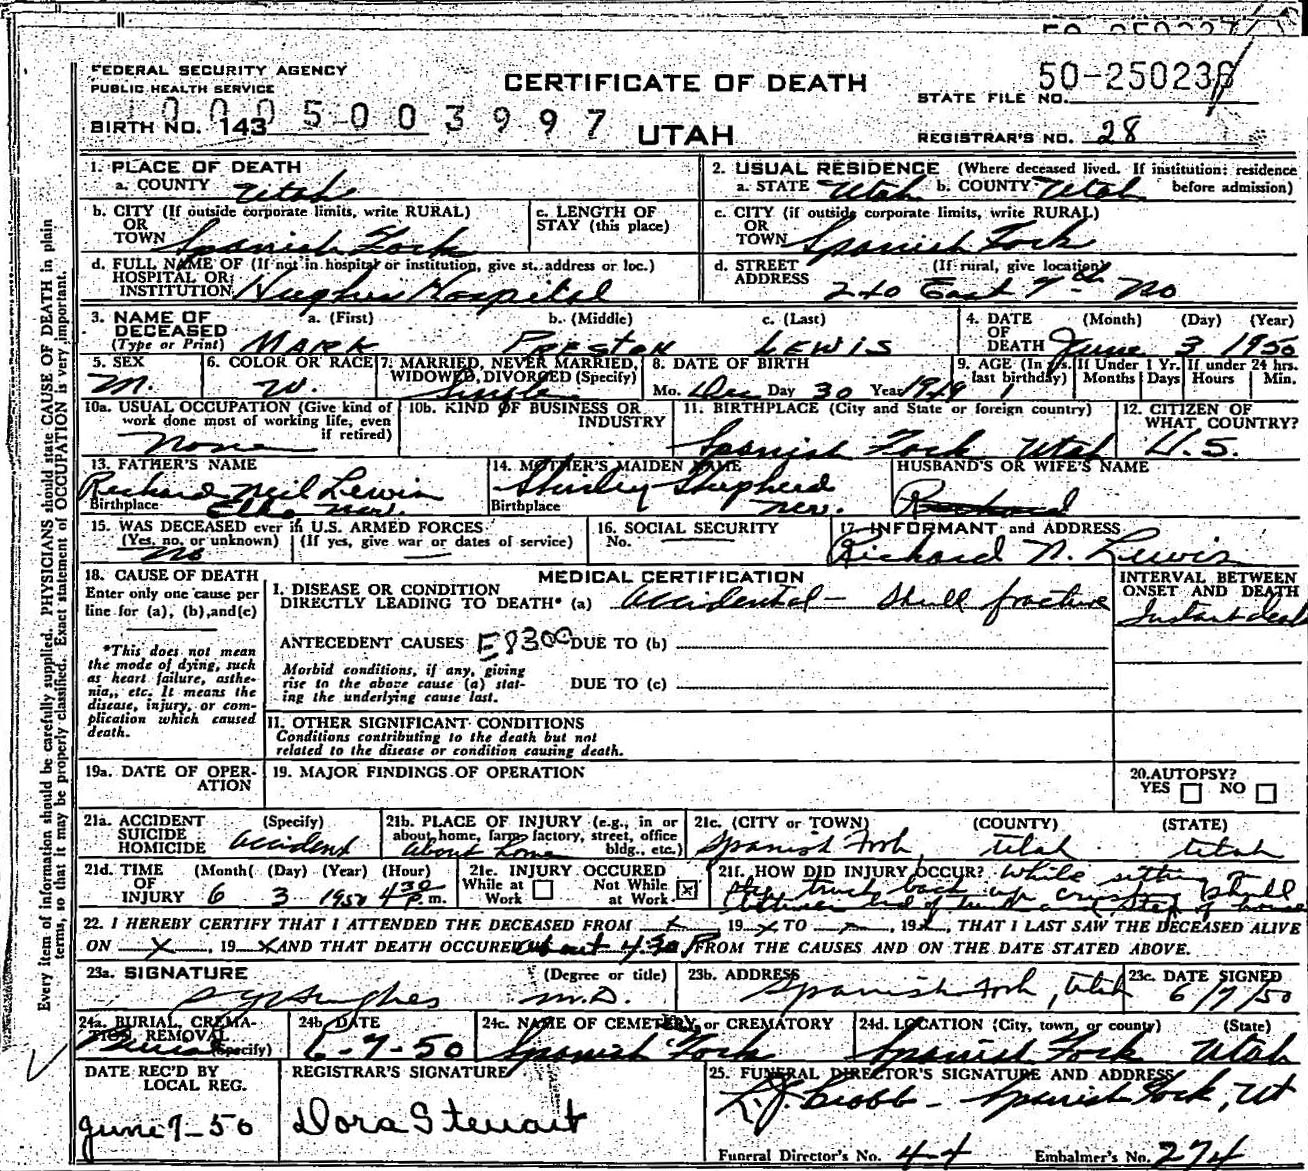 FEDERAL SECURITY AGENCY
PUBLIC HEALTH SERVICE
CERTIFICATE OF DEATH
50-250236
STATE FILE NO.
0005003997
BIRTH NO. 143
UTAH
REGISTRAR'S NO. 28
1. PLACE OF DEATH
a. COUNTY Utah
2. USUAL RESIDENCE (Where deceased lived. If institution: residence before admission)
a. STATE Utah b. COUNTY Utah
b. CITY (If outside corporate limits, write RURAL)
OR
TOWN Spanish Fork
c. LENGTH OF
STAY (this place)
c. CITY (if outside corporate limits, write RURAL)
OR
TOWN Spanish Fork
d. FULL NAME OF (If not in hospital or institution, give st. address or loc.)
HOSPITAL OR
INSTITUTION Hughes Hospital
d. STREET (If rural, give location)
ADDRESS 240 East 7th No
3. NAME OF DECEASED (Type or Print)
a. (First) MARK
b. (Middle) PRESTON
c. (Last) LEWIS
4. DATE OF DEATH (Month) (Day) (Year)
June 3 1950
5. SEX
M.
6. COLOR OR RACE
W.
7. MARRIED, NEVER MARRIED,
WIDOWED, DIVORCED (Specify)
Single
8. DATE OF BIRTH
Mo. Dec Day 30 Year 1949
9. AGE (In yrs. last birthday)
If Under 1 Yr. Months Days
If under 24 hrs. Hours Min.
10a. USUAL OCCUPATION (Give kind of
work done most of working life, even
if retired)
None
10b. KIND OF BUSINESS OR
INDUSTRY
11. BIRTHPLACE (City and State or foreign country)
Spanish Fork Utah
12. CITIZEN OF
WHAT COUNTRY?
U.S.
13. FATHER'S NAME
Richard Neil Lewis
Birthplace Elko Nev.
14. MOTHER'S MAIDEN NAME
Shirley Shepherd
Birthplace Nev.
HUSBAND'S OR WIFE'S NAME
15. WAS DECEASED ever in U.S. ARMED FORCES
(Yes, no, or unknown) (If yes, give war or dates of service)
No
16. SOCIAL SECURITY
No.
17. INFORMANT and ADDRESS
Richard N. Lewis
18. CAUSE OF DEATH
Enter only one cause per
line for (a), (b), and (c)
*This does not mean
the mode of dying, such
as heart failure, asthe-
nia, etc. It means the
disease, injury, or com-
plication which caused
death.
MEDICAL CERTIFICATION
I. DISEASE OR CONDITION
DIRECTLY LEADING TO DEATH* (a) Accidental - Skull fracture
ANTECEDENT CAUSES E8300 DUE TO (b)
Morbid conditions, if any, giving
rise to the above cause (a) stat-
ing the underlying cause last.
DUE TO (c)
II. OTHER SIGNIFICANT CONDITIONS
Conditions contributing to the death but not
related to the disease or condition causing death.
INTERVAL BETWEEN
ONSET AND DEATH
Instant death
19a. DATE OF OPER-
ATION
19. MAJOR FINDINGS OF OPERATION
20. AUTOPSY?
YES NO
21a. ACCIDENT (Specify)
SUICIDE
HOMICIDE accident
21b. PLACE OF INJURY (e.g., in or
about home, farm, factory, street, office
bldg., etc.)
About home
21c. (CITY or TOWN) (COUNTY) (STATE)
Spanish Fork Utah Utah
21d. TIME (Month) (Day) (Year) (Hour)
OF
INJURY 6 3 1950 4 30 P.m.
21e. INJURY OCCURED
While at Work
Not While at Work X
21f. HOW DID INJURY OCCUR? While sitting on
step truck back up crushing skull
between end of truck and step of house
22. I HEREBY CERTIFY THAT I ATTENDED THE DECEASED FROM x 19 x TO x, 19 x, THAT I LAST SAW THE DECEASED ALIVE
ON x, 19 x AND THAT DEATH OCCURED about 4:30 P FROM THE CAUSES AND ON THE DATE STATED ABOVE.
23a. SIGNATURE (Degree or title)
Hughes M.D.
23b. ADDRESS
Spanish Fork, Utah
23c. DATE SIGNED
6/7/50
24a. BURIAL, CREMA-
TION, REMOVAL
(Specify)
Burial
24b. DATE
6-7-50
24c. NAME OF CEMETERY or CREMATORY
Spanish Fork
24d. LOCATION (City, town, or county) (State)
Spanish Fork Utah
DATE REC'D BY
LOCAL REG.
June 7-50
REGISTRAR'S SIGNATURE
Dora Stewart
25. FUNERAL DIRECTOR'S SIGNATURE AND ADDRESS
Spanish Fork, Ut
Funeral Director's No. 44
Embalmer's No. 274
Every item of information should be carefully supplied. PHYSICIANS should state CAUSE OF DEATH in plain
terms, so that it may be properly classified. Exact statement of OCCUPATION is very important.